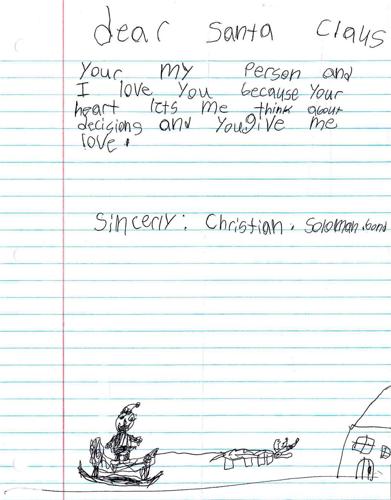 dear Santa Claus
Your my Person and
I love you because your
heart lets me think about
decisions and you give me
love.
Sincerly: Christian. Soloman.bond